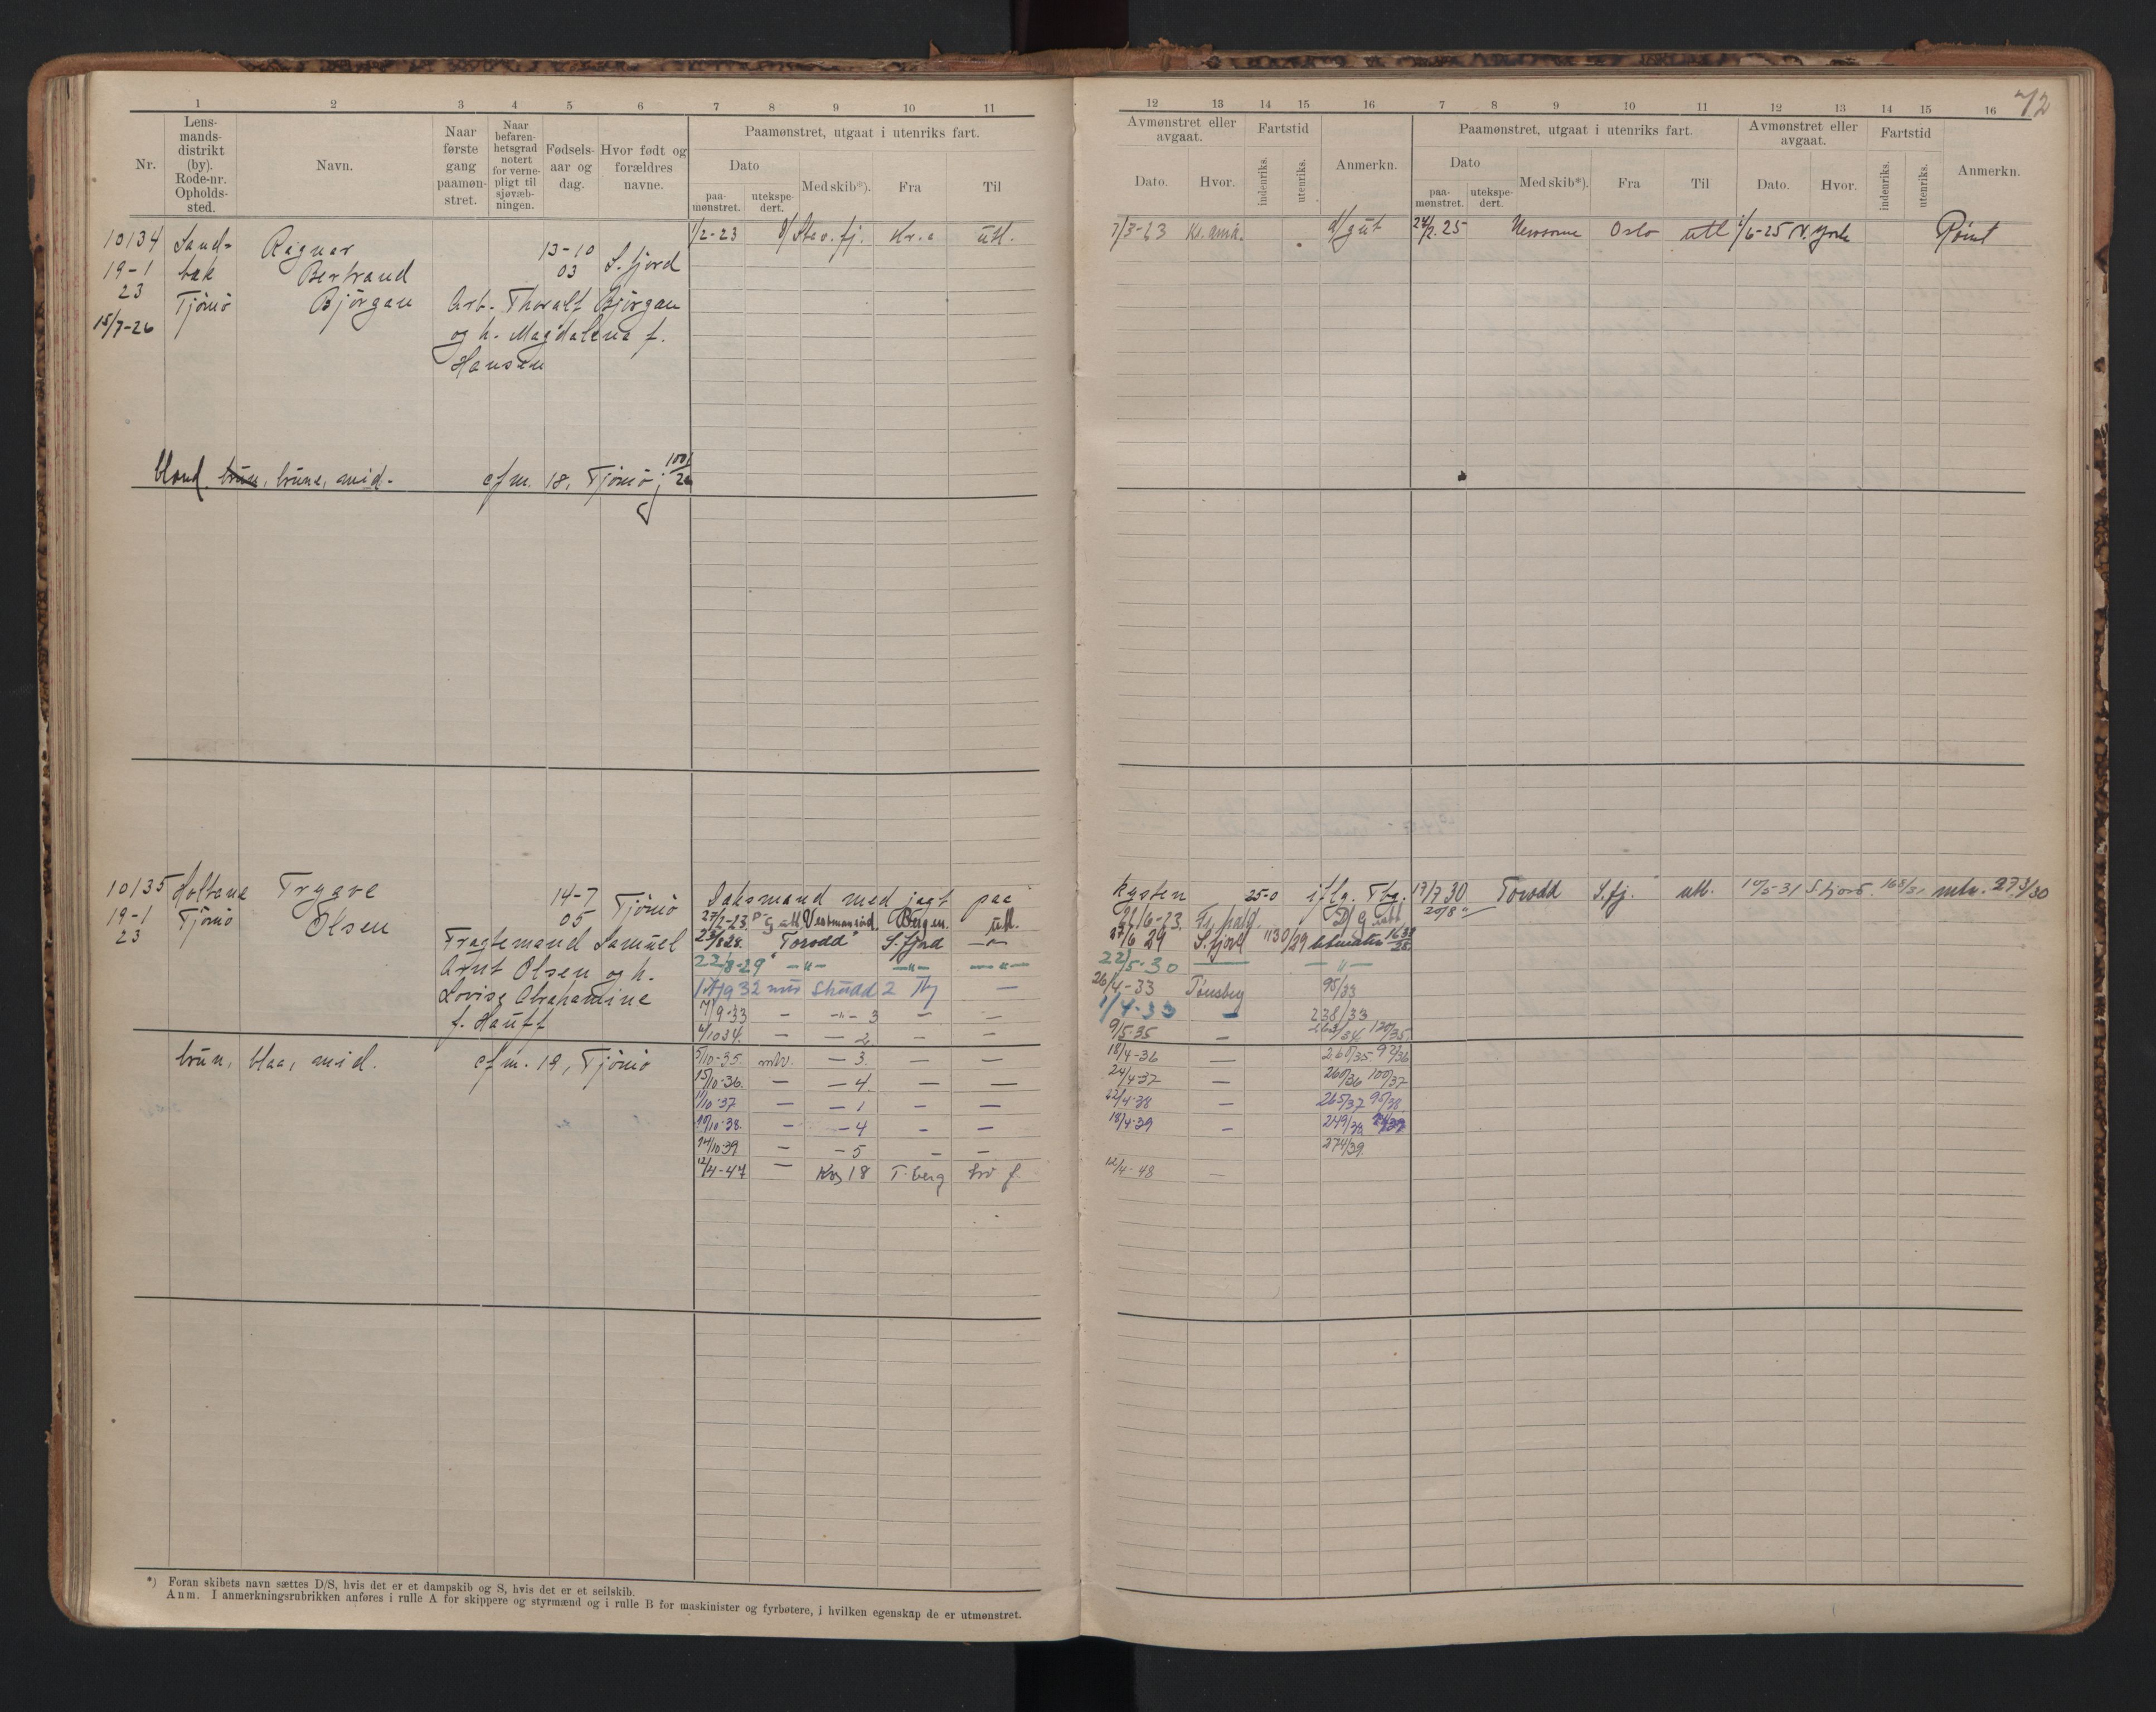 72
1 2 3 4 5 6 7 8 9 10 11
Nr.
Lens-
mands-
distrikt
(by).
Rode-nr.
Opholds-
sted.
Navn.
Naar
første
gang
paamøn-
stret.
Naar
befaren-
hetsgrad
notert
for verne-
pligt til
sjøvæb-
ningen.
Fødsels-
aar og
dag.
Hvor født og
forældres
navne.
Paamønstret, utgaat i utenriks fart.
Dato
paa-
mønstret.
utekspe-
dert.
Med skib*).
Fra
Til
10134 Sand- Ragnar 13-10 S.fjord 1/2-23 Stav.fj. Kr.a utl.
19-1 bæk Bertrand 03
23 Tjömö Björgan Arb. Thoralf Björgan
15/7-26 og h. Magdalena f.
Hansen
blond, brun, brune, mid. cfm. 18, Tjömö
10135 Holtane Trygve 14-7 Tjömö Daksmand med jagt paa
19-1 Tjömö Olsen 05 27/2-23 Vestmanröd Bergen utl.
23 Fragtemand Samuel 23/8 28. Torodd S.fjord —"—
Arnt Olsen og h. 22/8-29 —"— —"— —"—
Lovise Abrahamine 1932 Skudd 2 Tbg —
f. Hauff 7/9-33 — —"— 3 — —
6/10 34. — — 2 — —
brun, blaa, mid. cfm. 19, Tjömö 5/10-35. mbv. — 3. — —
15/10-36. — — 4. — —
11/10-37. — — 1 — —
10/10-38. — — 4 — —
14/10 39 — — 5 — —
12/4-47 — Kos 18 T.berg
*) Foran skibets navn sættes D/S, hvis det er et dampskib og S, hvis det er et seilskib.
Anm. I anmerkningsrubrikken anføres i rulle A for skippere og styrmænd og i rulle B for maskinister og fyrbøtere, i hvilken egenskap de er utmønstret.
12 13 14 15 16 7 8 9 10 11 12 13 14 15 16
Avmønstret eller
avgaat.
Dato.
Hvor.
Fartstid
indenriks.
utenriks.
Anmerkn.
Paamønstret, utgaat i utenriks fart.
Dato
paa-
mønstret.
utekspe-
dert.
Med skib*).
Fra
Til
Avmønstret eller
avgaat.
Dato.
Hvor.
Fartstid
indenriks.
utenriks.
Anmerkn.
7/3-23 Kr.ania. d/gut 24/2.25 Oslo utl 1/6-25 N.York
kysten 25-0 iflg. Tbg. 17/7 30 Torodd S.fj. utl. 10/5-31 S fjord. 168/31 mtr. 273/30
21/6-23. Fr.hald. 20/8 "
27/6 29 S.fjord 1130/29
22/5-30 — —"—
26/4-33 Tönsberg 95/33
1/4-33 — 238/33
9/5-35 — 120/35.
18/4-36 — 260/35 - 92/36
24/4-37 — 260/36 100/37
22/4-38 — 265/37 95/38.
18/4-39 — 249/38
274/39.
12/4-48 —